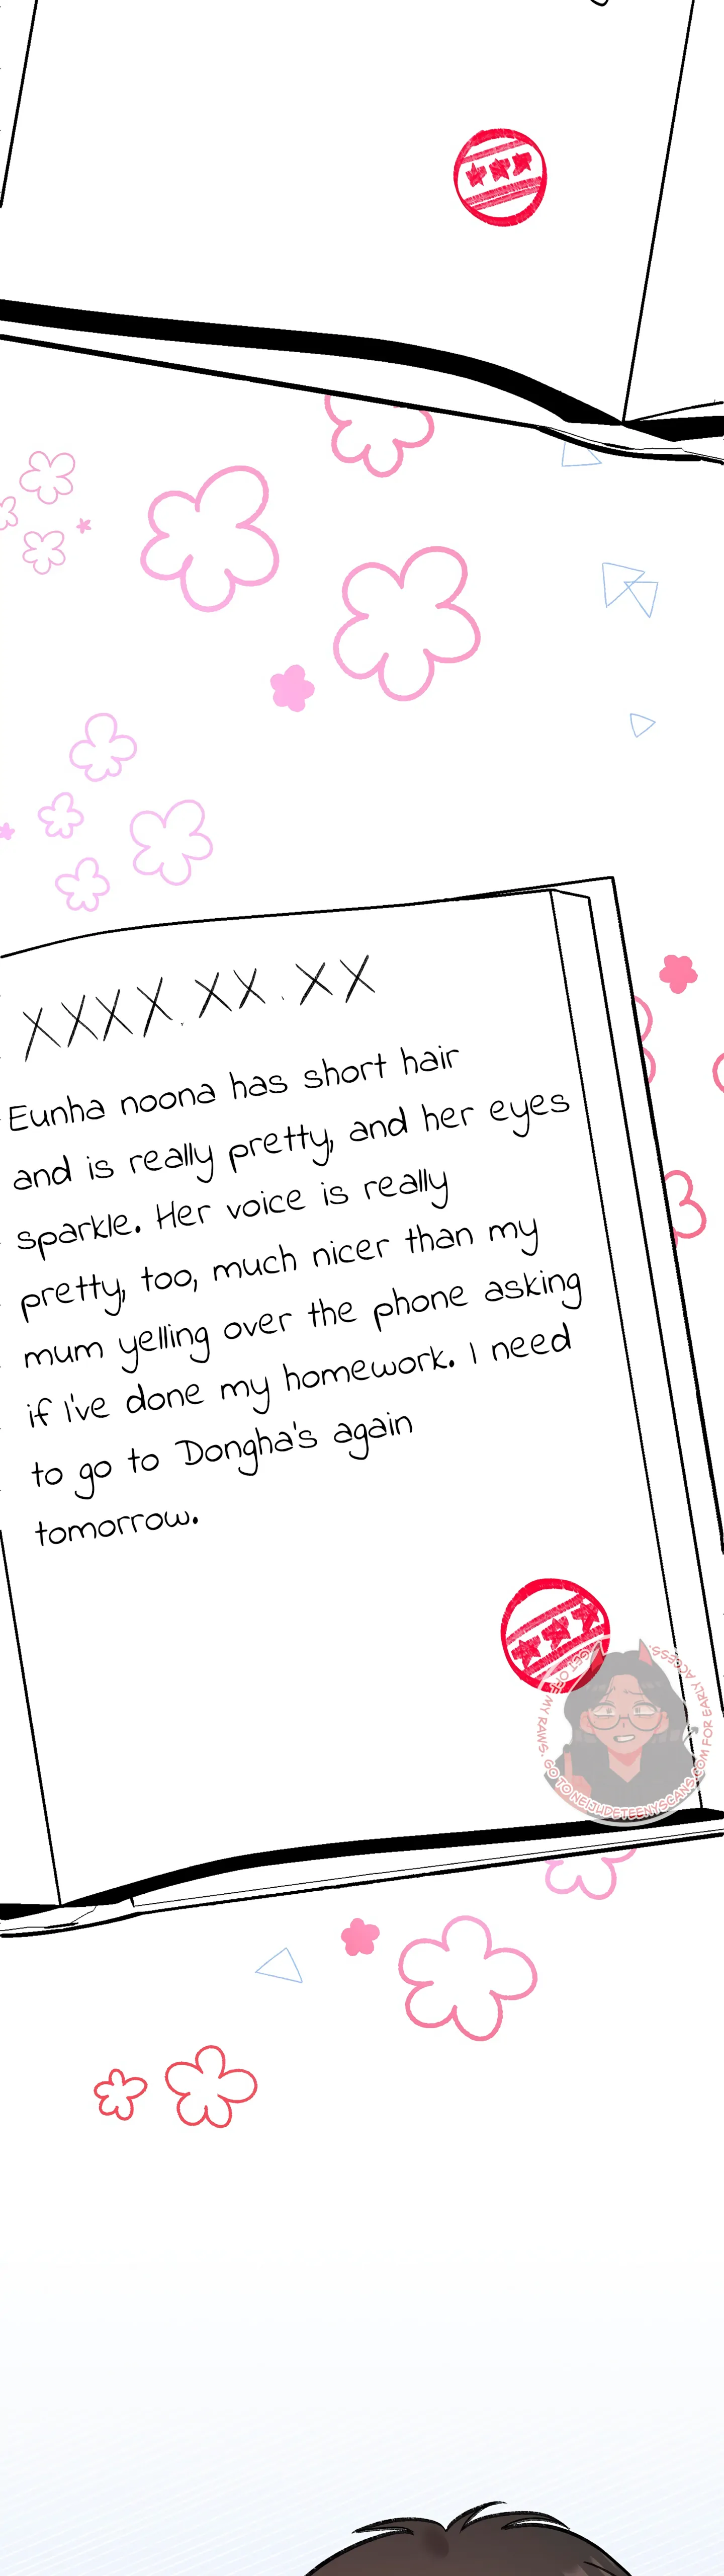 XXXX.XX.XX
Eunha noona has short hair
and is really pretty, and her eyes
sparkle. Her voice is really
pretty, too, much nicer than my
mum yelling over the phone asking
if I've done my homework. I need
to go to Dongha's again
tomorrow.
GET OFF MY RAWS. GO TO NEIJIJDETEENYSCANS.COM FOR EARLY ACCESS.